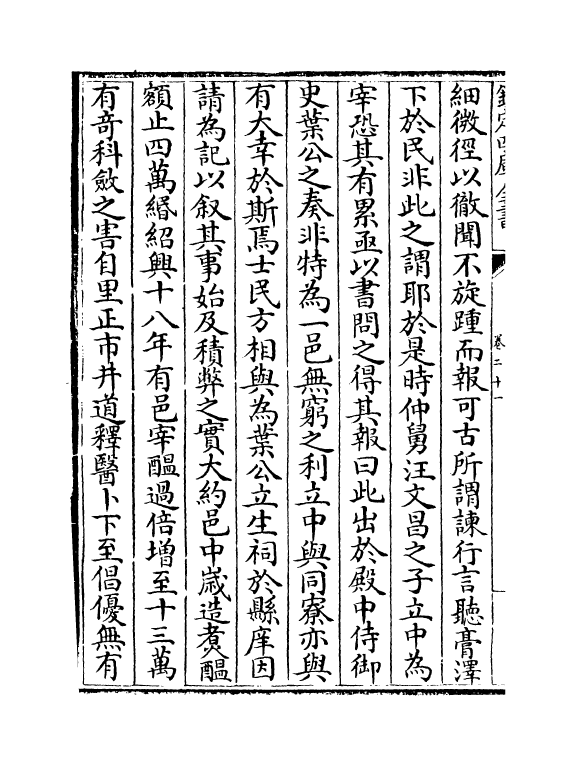 欽定四庫全書
卷二十一
細微徑以徹聞不旋踵而報可古所謂諫行言聽膏澤
下於民非此之謂耶於是時仲舅汪文昌之子立中為
宰恐其有累亟以書問之得其報曰此出於殿中侍御
史葉公之奏非特為一邑無窮之利立中與同寮亦與
有大幸於斯焉士民方相與為葉公立生祠於縣庠因
請為記以叙其事始及積弊之實大約邑中歳造煑醖
額止四萬緡紹興十八年有邑宰醖過倍增至十三萬
有竒科斂之害自里正市井道釋醫卜下至倡優無有